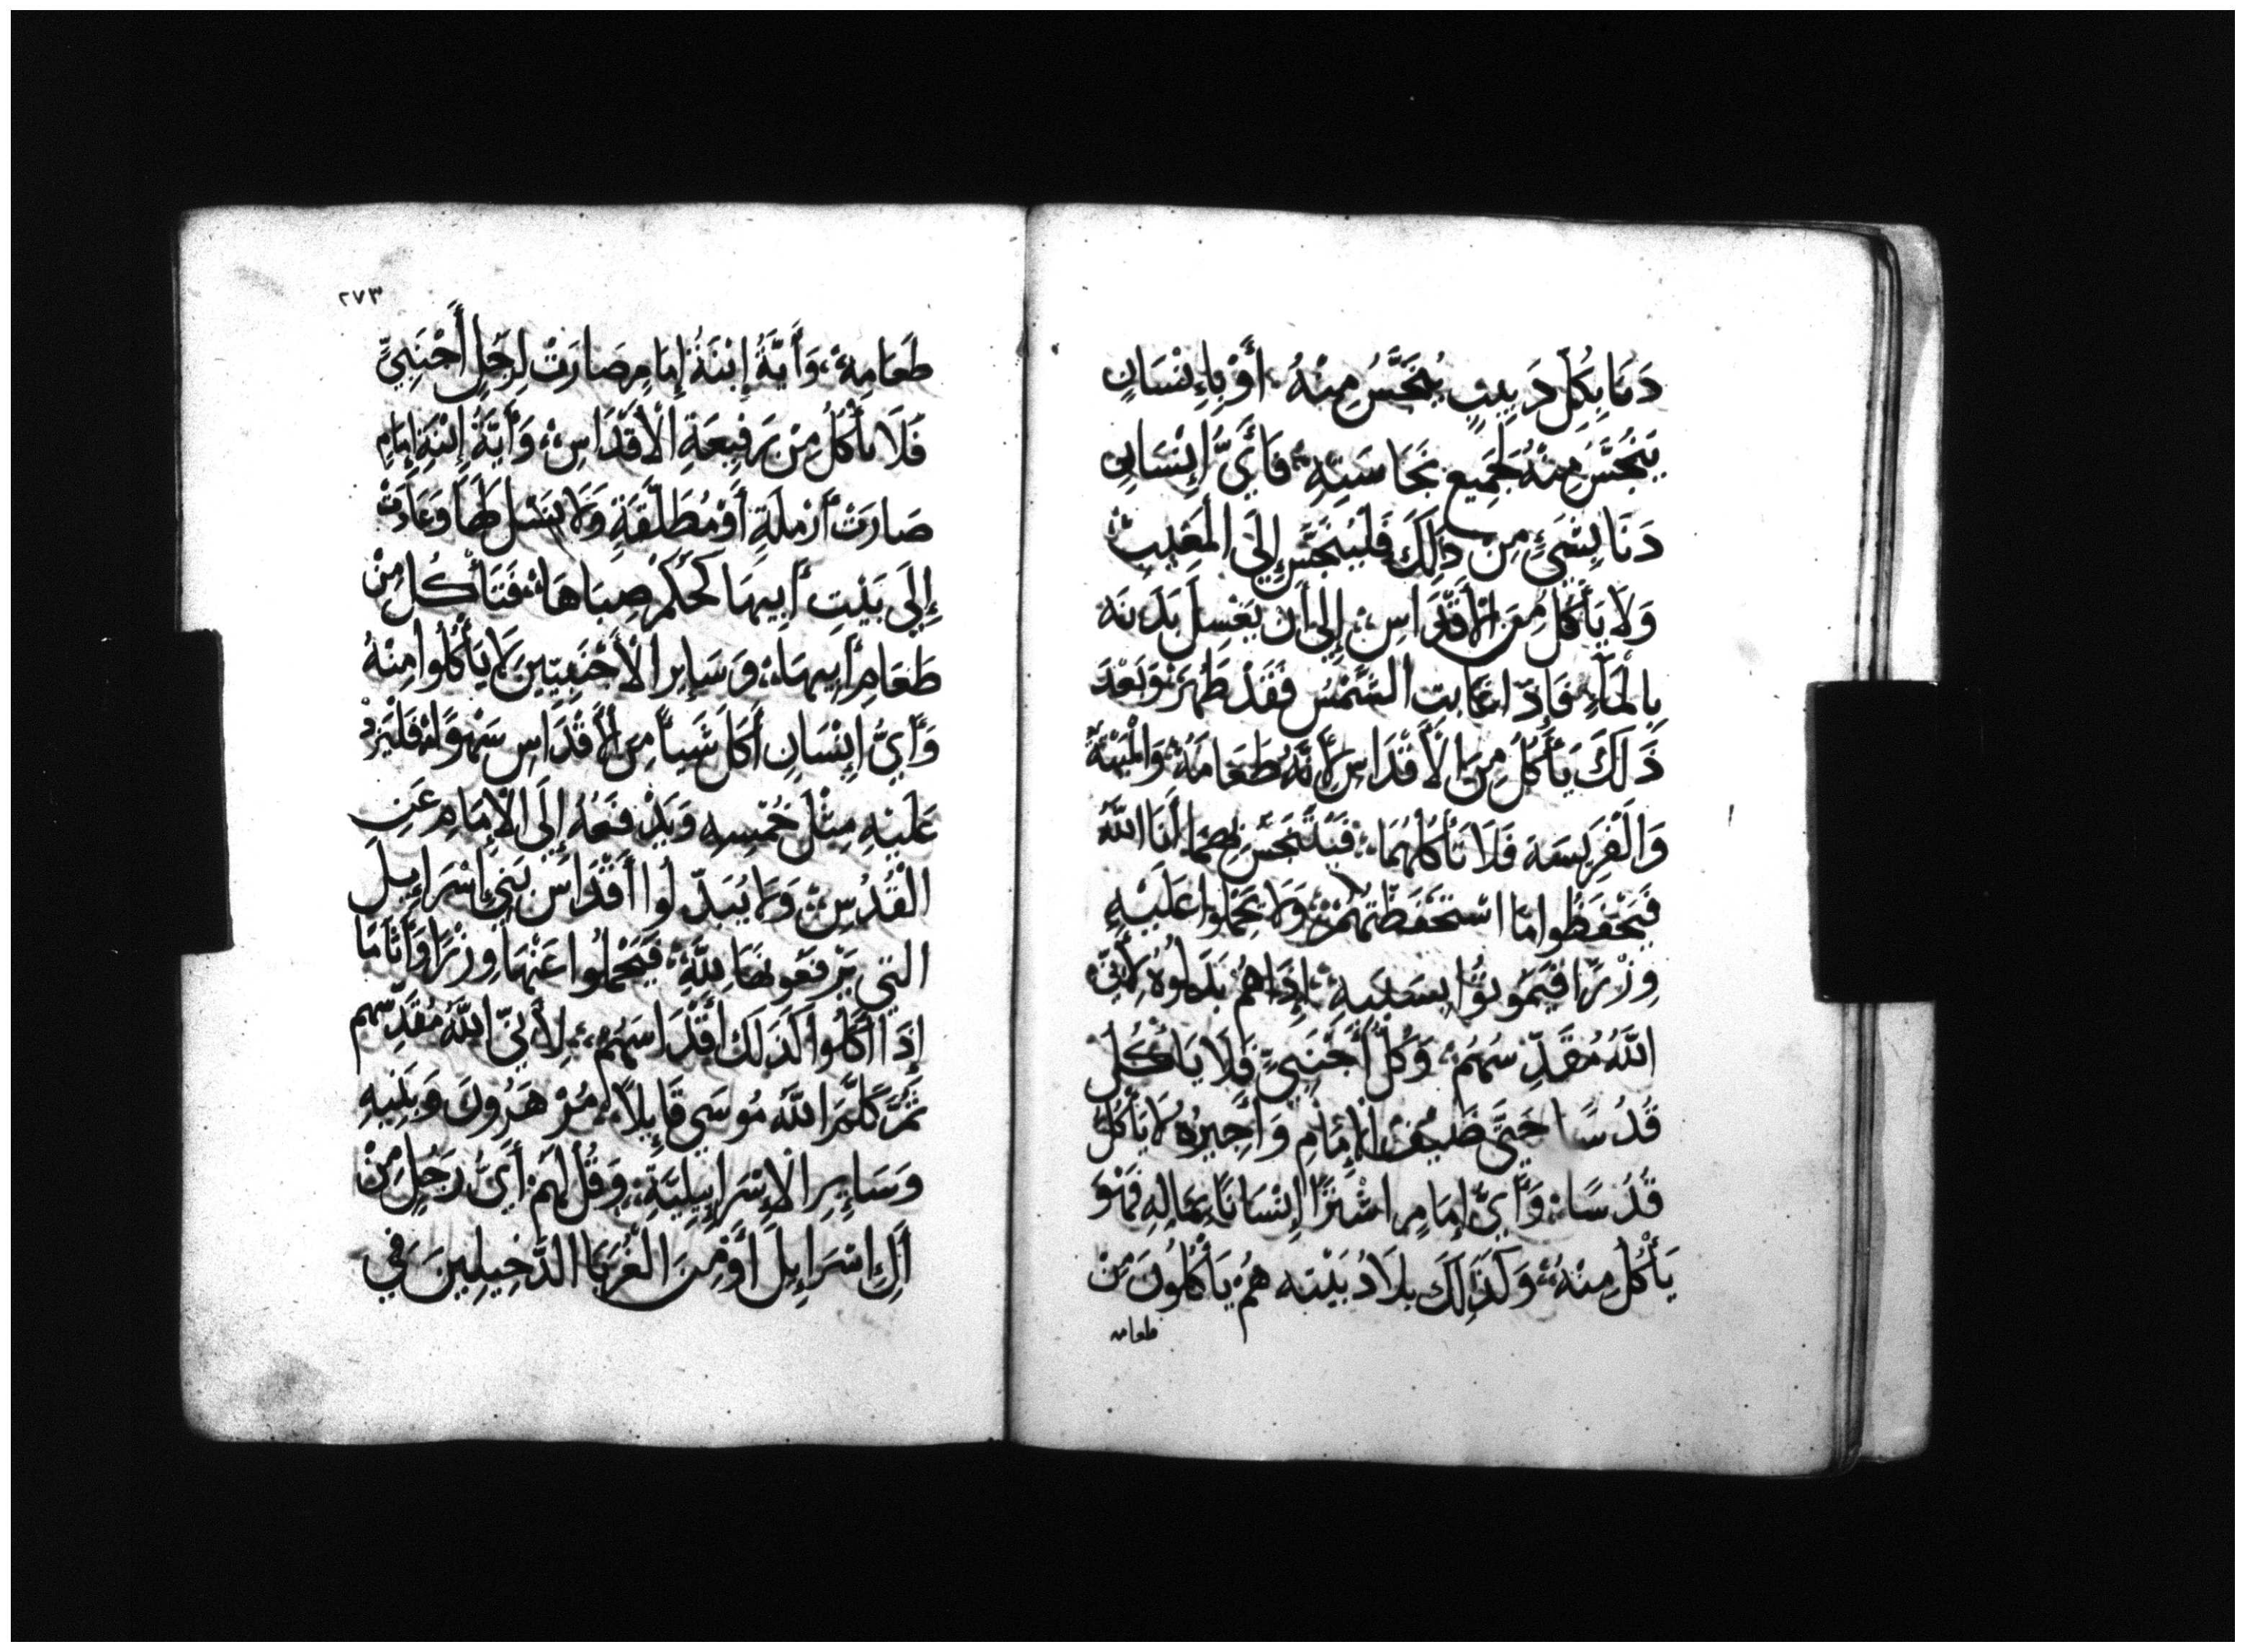 دَنَا بِكُلِّ دَبِيبٍ يُنَجَّسُ مِنْهُ أَوْ بِإِنْسَانٍ
يَنْجَسُ مِنْهُ لِجَمِيعِ نَجَاسَتِهِ فَأَيُّ إِنْسَانٍ
دَنَا بِشَيْءٍ مِنْ ذَلِكَ فَلْيَنْجَسْ إِلَى الْمَغِيبِ
وَلَا يَأْكُلْ مِنَ الْأَقْدَاسِ إِلَى أَنْ يَغْسِلَ بَدَنَه
بِالْمَاءِ فَإِذَا غَابَتِ الشَّمْسُ فَقَدْ طَهُرَ وَبَعْدَ
ذَلِكَ يَأْكُلُ مِنَ الْأَقْدَاسِ لِأَنَّهُ طَعَامَهُ وَالْمَيْتَةُ
وَالْفَرِيسَه فَلَا تَأْكُلْهُمَا فَيَتَنَجَّسْ بِهِمَا أَنَا اللَّهُ
فَيَحْفَظُوا مَا اسْتَحْفَظْتُهُمْ وَلَا يَحْمِلُوا عَلَيْهِ
وِزْرًا فَيَمُوتُوا بِسَبَبِهِ إِذَا هُمْ بَدَلُوهُ لِأَنِّي
اللَّهُ مُقَدِّسُهُمْ وَكُلُّ أَجْنَبِيٍّ فَلَا يَأْكُلْ
قُدْسًا حَتَّى ضَيْفُ الْإِمَامِ وَأَجِيرُهُ لَا يَأْكُلْ
قُدْسًا وَأَيُّ إِمَامٍ اشْتَرَا إِنْسَانًا بِمَالِهِ فَهُوَ
يَأْكُلُ مِنْهُ وَكَذَلِكَ بِلَادُ بَيْتِه هُمْ يَأْكُلُونَ مِنْ
طعامه
٢٧٣
طَعَامِهِ وَأَيَّةُ إِبْنَةُ إِمَامٍ صَارَتْ لِرَجُلٍ أَجْنَبِيٍّ
فَلَا تَأْكُلُ مِنْ رَفِيعَةِ الْأَقْدَاسِ وَأَيَّةُ إِبْنَةِ إِمَامٍ
صَارَتْ أَرْمَلَةٍ أَوْ مُطَلَّقَةٍ وَلَا نَسْلَ لَهَا وَعَادَتْ
إِلَى بَيْتِ أَبِيهَا كَحُكْمِ صِبَاهَا فَتَأْكُلُ مِنْ
طَعَامِ أَبِيهَا وَسَايِرِ الْأَجْنَبِيِّينَ لَا يَأْكُلُوا مِنْهُ
وَأَيُّ إِنْسَانٍ أَكَلَ شَيْأً مِنَ الْأَقْدَاسِ سَهْوًا فَلْيَزِدْ
عَلَيْهِ مِثْلَ خُمْسِهِ وَيَدْفَعُهُ إِلَى الْإِمَامِ عَنِ
الْقُدْسِ وَلَا يُبَدِّلُوا أَقْدَاسَ بَنِي إِسْرَايِلَ
الَّتِي يَرْفَعُونَهَا لِلَّهِ فَيَحْمِلُوا عَنْهَا وِزْرًا وَأَثَامًا
إِذَا أَكَلُوا كَذَلِكَ أَقْدَاسَهُمْ لِأَنِّي اللَّهُ مُقَدِّسُهم
ثُمَّ كَلَّمَ اللَّهُ مُوسَى قَايِلًا مُرْ هَرُونَ وَبَنِيهِ
وَسَايِرِ الْإِسْرَايِيلِيَّةِ وَقُلْ لَهُمْ أَيُّ رَجُلٍ مِنْ
آلِ إِسْرَايِلَ أَوْ مِنَ الْغُرَبَا الدَّخِيلِينَ فِي